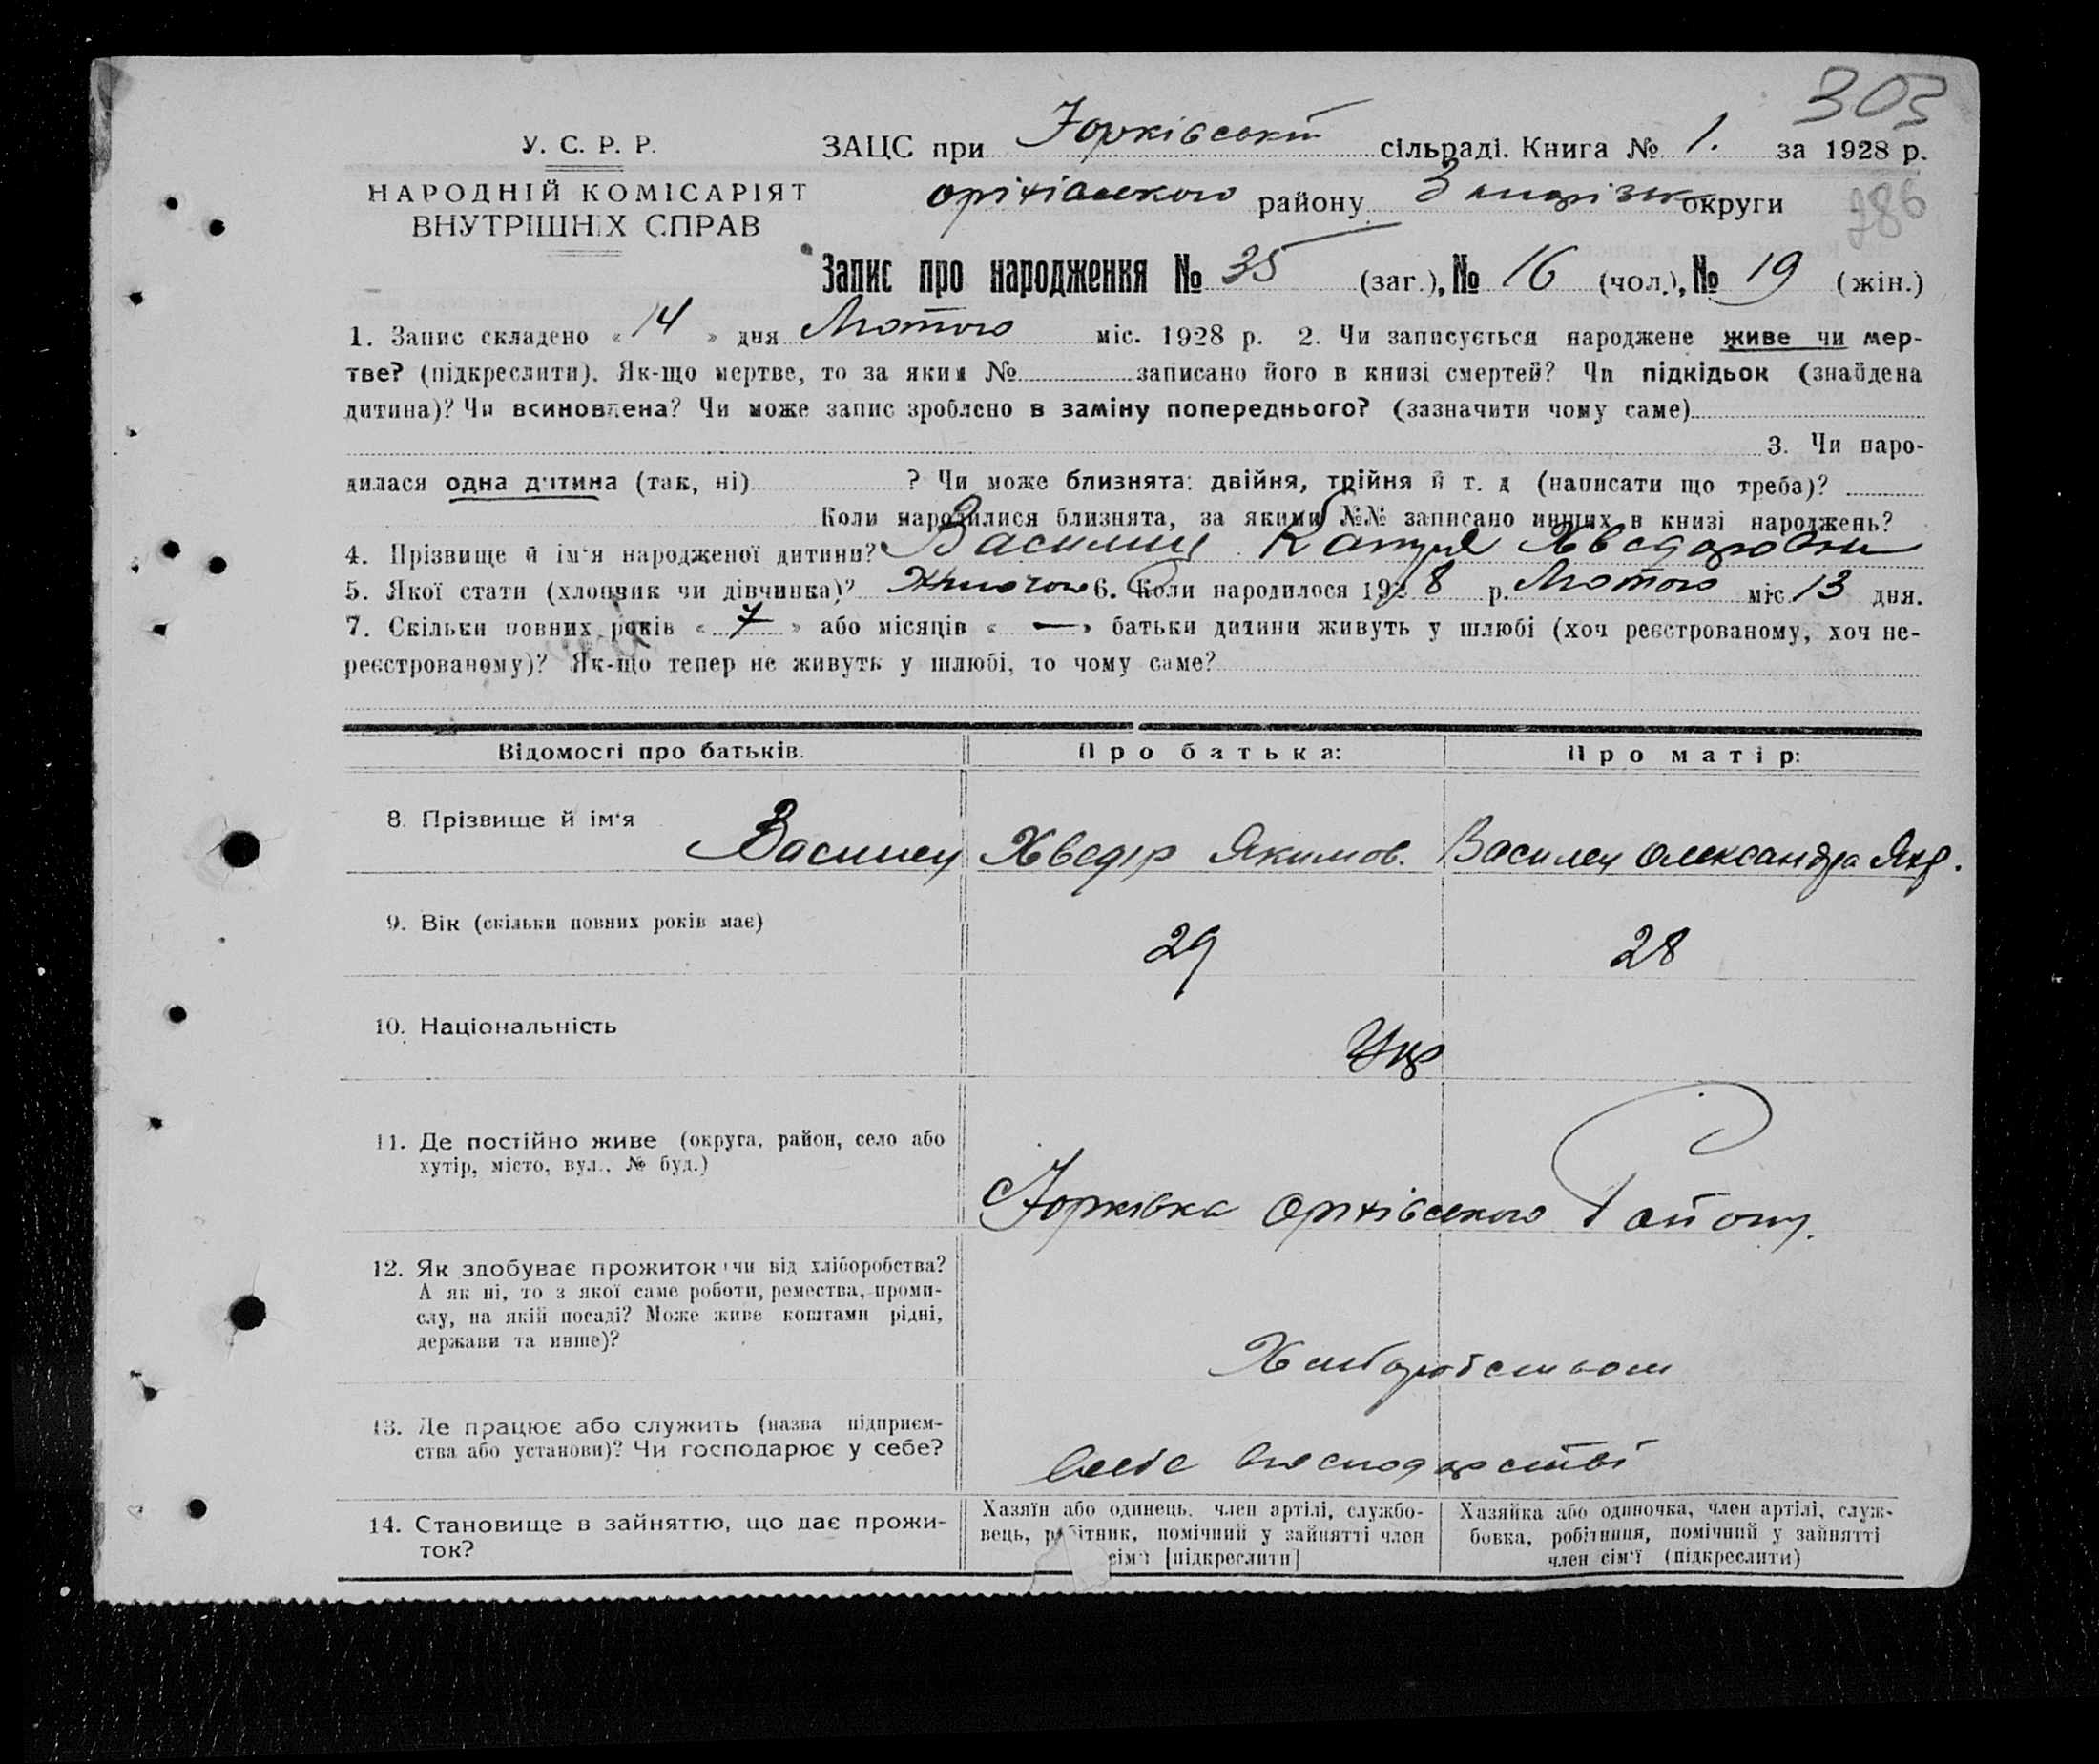 303
У. С. Р. Р.
ЗАЦС при Юрківськ сільраді. Книга № 1. за 1928 р.
НАРОДНІЙ КОМІСАРІЯТ
ВНУТРІШНІХ СПРАВ
оріхівського району Запорізьк округи
286
Запис про народження № 35 (заг.), № 16 (чол.), № 19 (жін.)
1. Запис складено « 14 » дня Лютого міс. 1928 р. 2. Чи записується народжене живе чи мер-
тве? (підкреслити). Як-що мертве, то за яким № записано його в книзі смертей? Чи підкідьок (знайдена
дитина)? Чи всиновлена? Чи може запис зроблено в заміну попереднього? (зазначити чому саме)
3. Чи наро-
дилася одна дитина (так, ні) ? Чи може близнята: двійня, трійня й т. д (написати що треба)?
Коли народилися близнята, за якими №№ записано инших в книзі народжень?
4. Прізвище й ім'я народженої дитини? Василец Катря Хведоровни
5. Якої стати (хлопчик чи дівчинка)? Жіночого 6. Коли народилося 1928 р. Лютого міс 13 дня.
7. Скільки повних років « 7 » або місяців « — » батьки дитини живуть у шлюбі (хоч реєстрованому, хоч не-
реєстрованому)? Як-що тепер не живуть у шлюбі, то чому саме?
Відомості про батьків. Про батька: Про матір:
8. Прізвище й ім'я Василец Хведір Якимов. Василец Олександра Якр.
9. Вік (скільки повних років має) 29 28
10. Національність Укр
11. Де постійно живе (округа, район, село або
хутір, місто, вул., № буд.)
Юрківка Оріхівського Району.
12. Як здобуває прожиток чи від хліборобства?
А як ні, то з якої саме роботи, ремества, проми-
слу, на якій посаді? Може живе коштами рідні,
держави та инше)?
Хліборобством
13. Де працює або служить (назва підприєм-
ства або установи)? Чи господарює у себе?
господарстві
14. Становище в зайняттю, що дає прожи-
ток?
Хазяїн або одинець, член артілі, службо-
вець, робітник, помічний у зайнятті член
сім'ї [підкреслити]
Хазяйка або одиночка, член артілі, служ-
бовка, робітниця, помічний у зайнятті
член сім'ї (підкреслити)